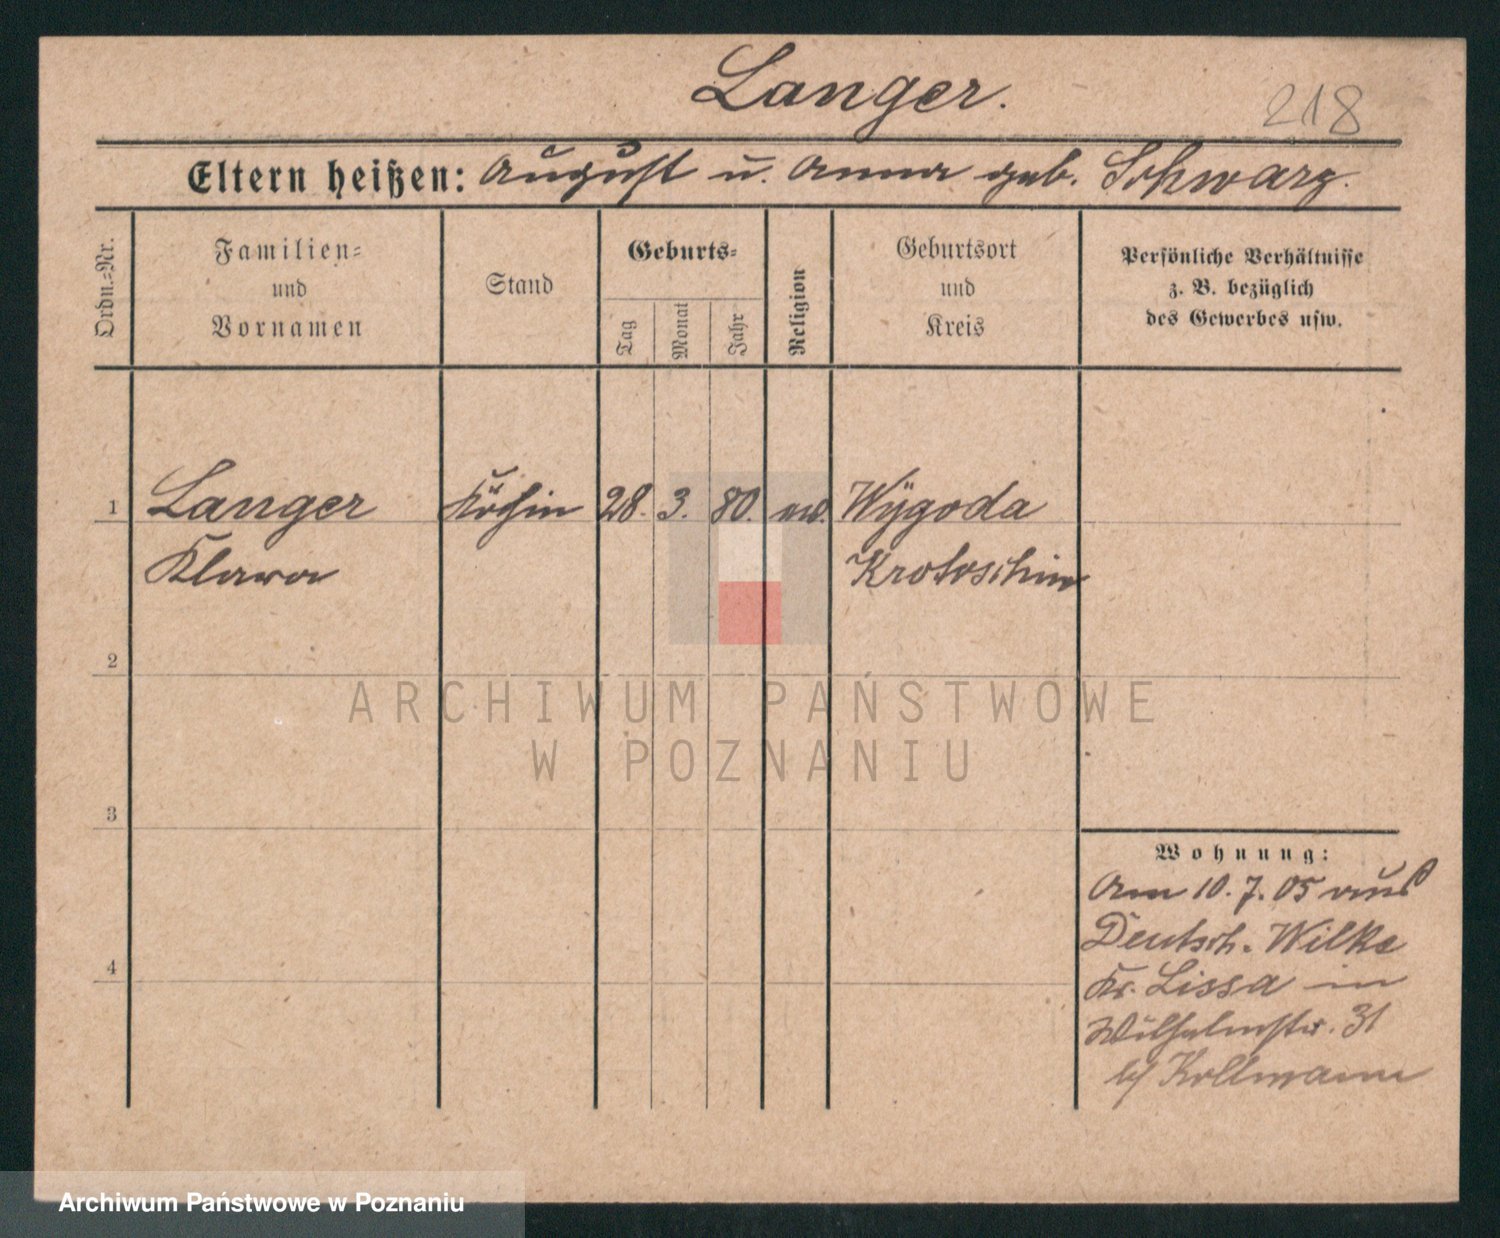 Langer.
218
Eltern heißen: August u. Anna geb. Schwarz.
Ordn.=Nr.
Familien=
und
Vornamen
Stand
Geburts=
Tag
Monat
Jahr
Religion
Geburtsort
und
Kreis
Persönliche Verhältnisse
z. B. bezüglich
des Gewerbes usw.
1 Langer Köchin 28. 3. 80. ev. Wygoda
Klara Krotoschin
2
ARCHIWUM PAŃSTWOWE
W POZNANIU
3
Wohnung:
Am 10. 7. 05 aus
Deutsch. Wilke
4
Kr. Lissa in
Wilhelmstr. 31
b/ Kollmann
Archiwum Państwowe w Poznaniu